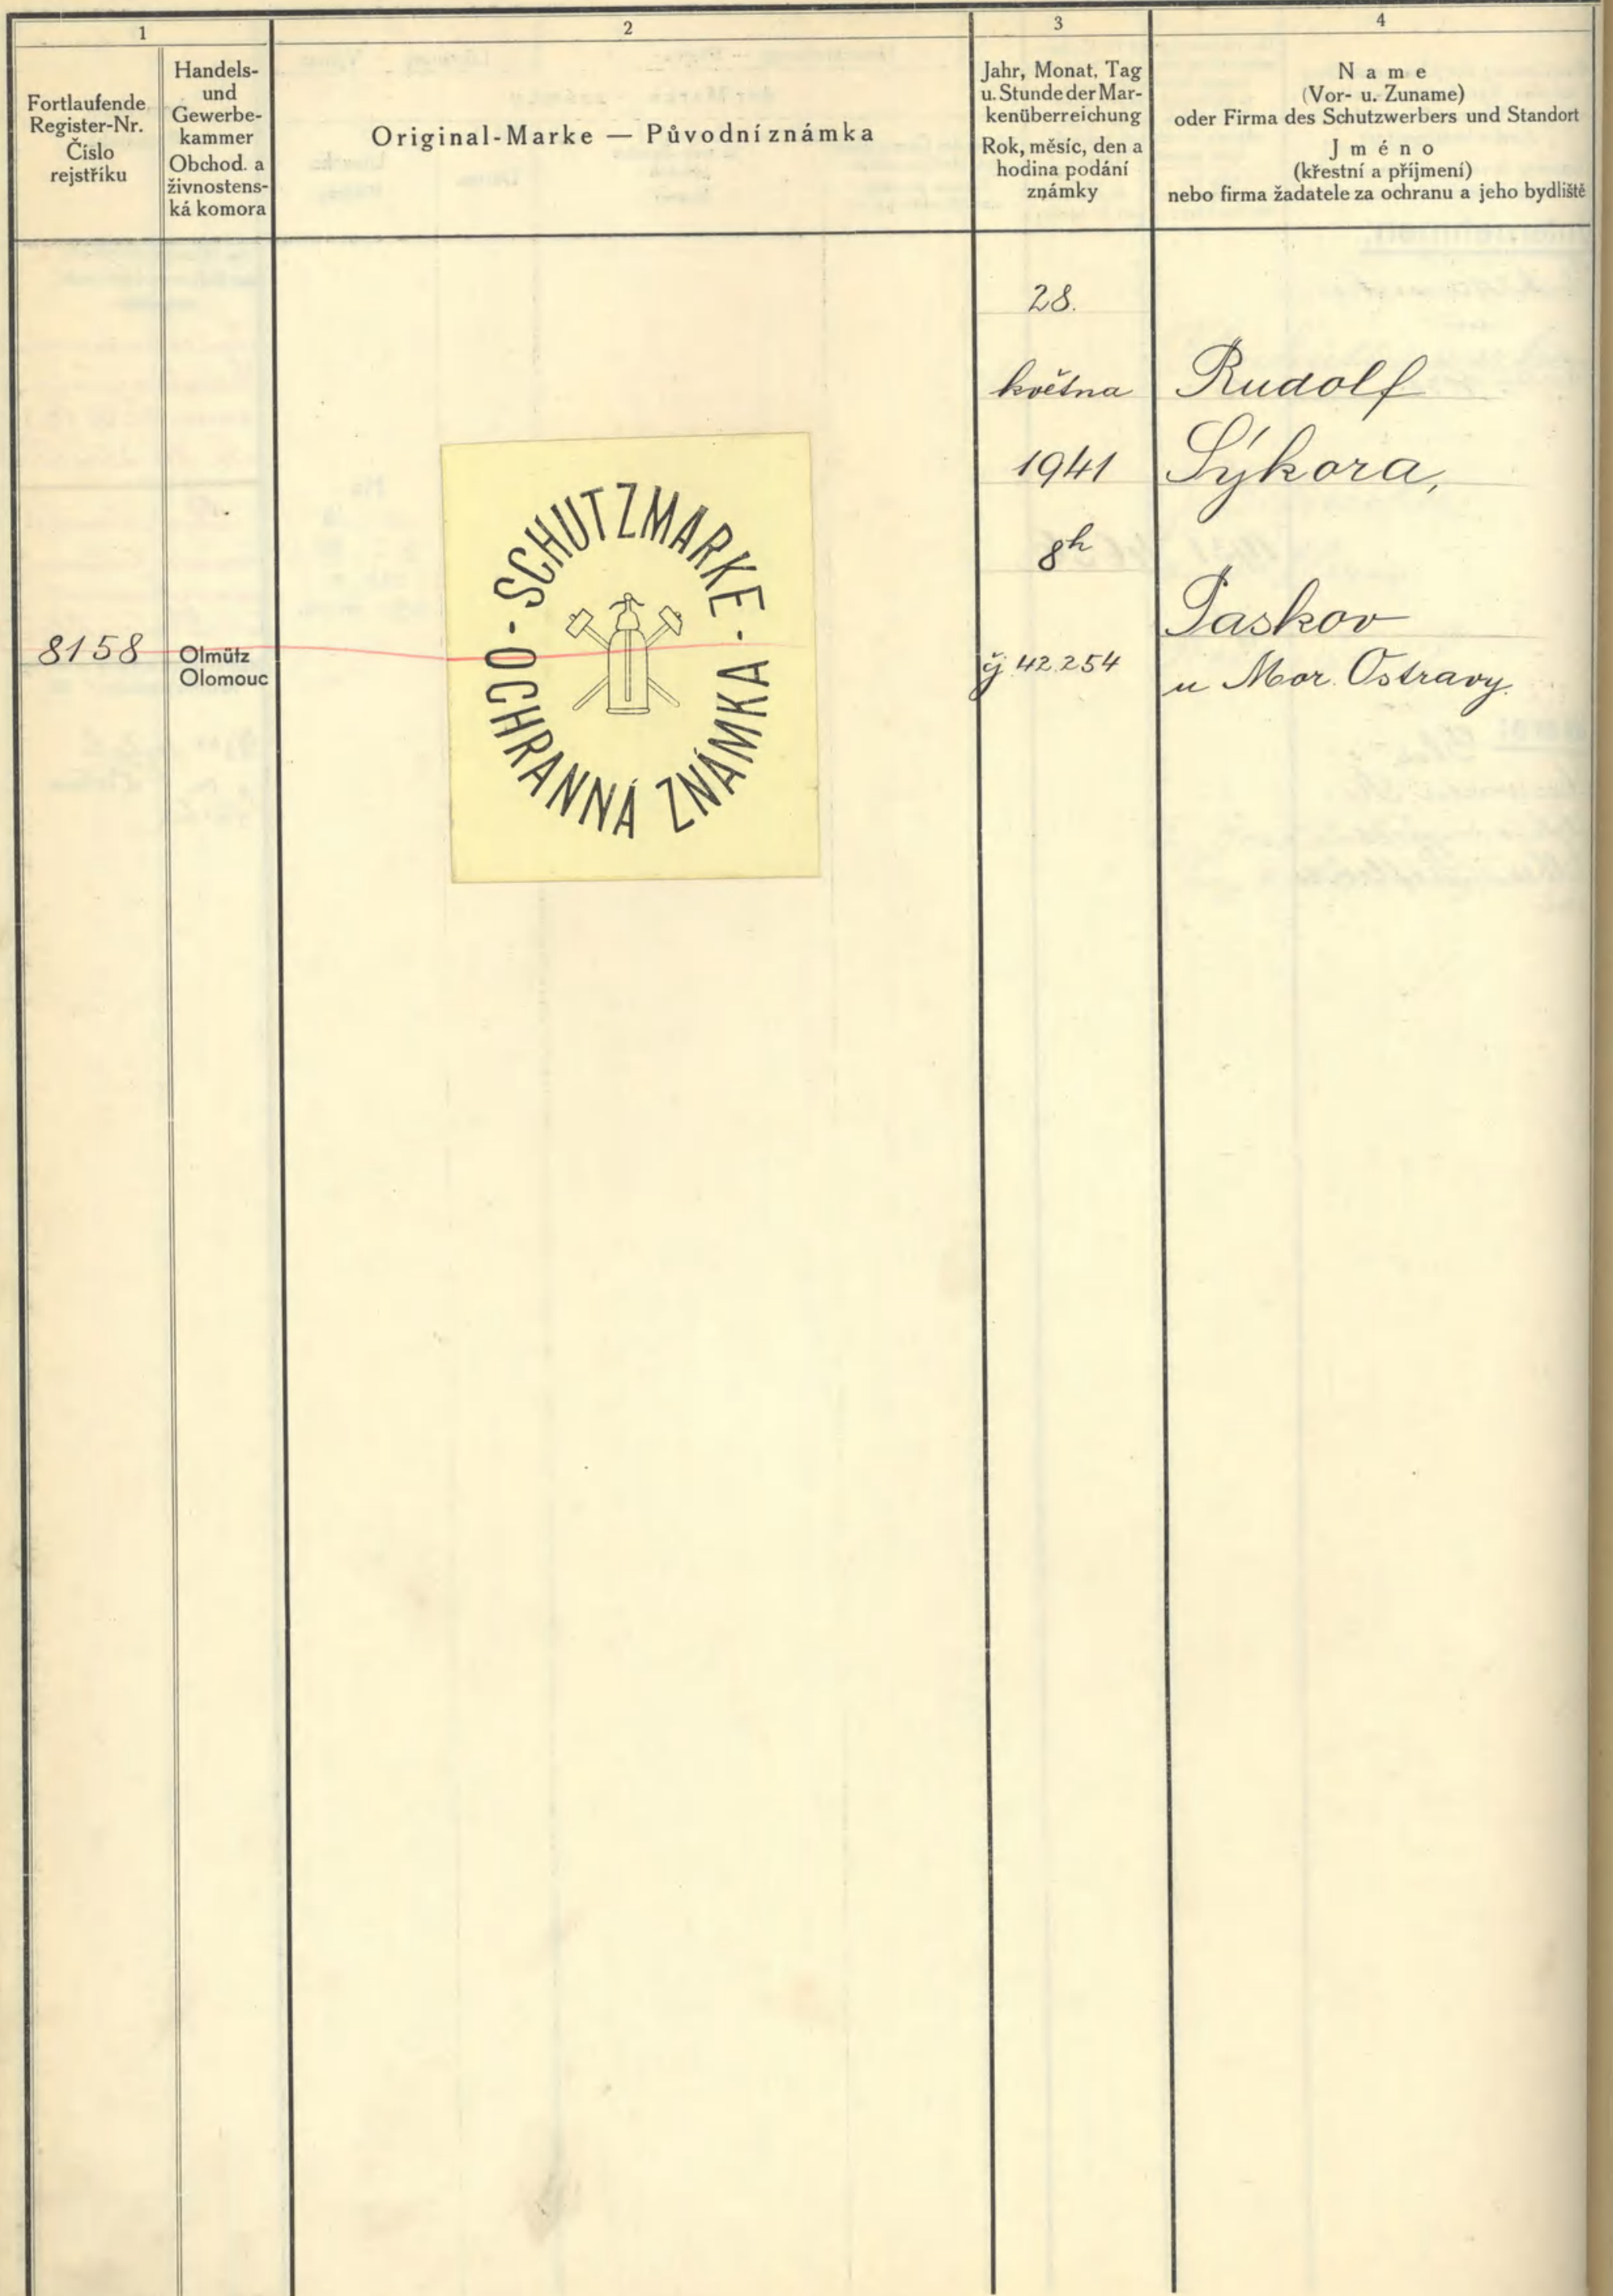 1
Fortlaufende
Register-Nr.
Číslo
rejstříku
Handels-
und
Gewerbe-
kammer
Obchod. a
živnostens-
ká komora
2
Original-Marke — Původní známka
3
Jahr, Monat, Tag
u. Stunde der Mar-
kenüberreichung
Rok, měsíc, den a
hodina podání
známky
4
Name
(Vor- u. Zuname)
oder Firma des Schutzwerbers und Standort
Jméno
(křestní a příjmení)
nebo firma žadatele za ochranu a jeho bydliště
8158
Olmütz
Olomouc
SCHUTZMARKE ·
OCHRANNÁ ZNÁMKA ·
28.
května
1941
8h
42.254
Rudolf
Sýkora,
Paskov
u Mor. Ostravy.